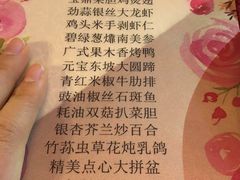 劲蒜银丝大龙虾
鸡头米手剥虾仁
碧绿葱爆南美参
广式果木香烤鸭
元宝东坡大圆蹄
青红米椒牛肋排
豉油椒丝石斑鱼
耗油双菇扒菜胆
银杏芥兰炒百合
竹荪虫草花炖乳鸽
精美点心大拼盆